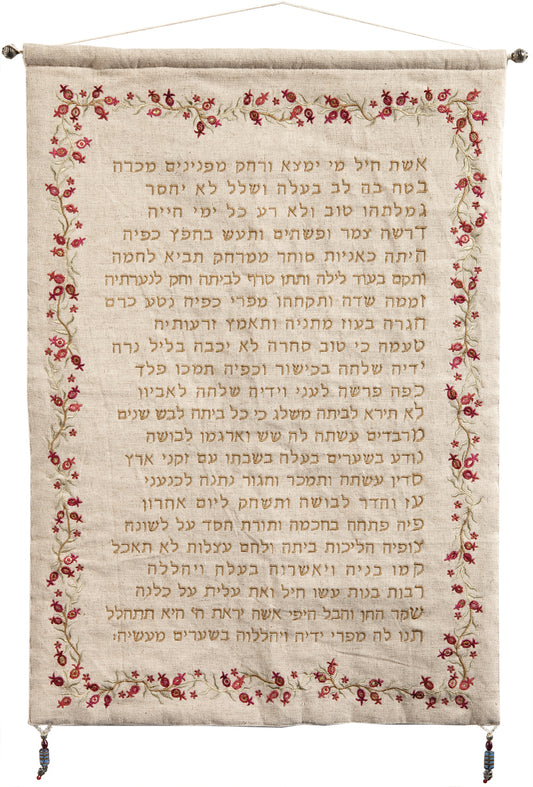 אשת חיל מי ימצא ורחק מפנינים מכרה
בטח בה לב בעלה ושלל לא יחסר
גמלתהו טוב ולא רע כל ימי חייה
דרשה צמר ופשתים ותעש בחפץ כפיה
היתה כאניות סוחר ממרחק תביא לחמה
ותקם בעוד לילה ותתן טרף לביתה וחק לנערתיה
זממה שדה ותקחהו מפרי כפיה נטע כרם
חגרה בעוז מתניה ותאמץ זרעותיה
טעמה כי טוב סחרה לא יכבה בליל נרה
ידיה שלחה בכישור וכפיה תמכו פלך
כפה פרשה לעני וידיה שלחה לאביון
לא תירא לביתה משלג כי כל ביתה לבש שנים
מרבדים עשתה לה שש וארגמן לבושה
נודע בשערים בעלה בשבתו עם זקני ארץ
סדין עשתה ותמכר וחגור נתנה לכנעני
עז והדר לבושה ותשחק ליום אחרון
פיה פתחה בחכמה ותורת חסד על לשונה
צופיה הליכות ביתה ולחם עצלות לא תאכל
קמו בניה ויאשרוה בעלה ויהללה
רבות בנות עשו חיל ואת עלית על כלנה
שקר החן והבל היפי אשה יראת ה' היא תתהלל
תנו לה מפרי ידיה ויהללוה בשערים מעשיה: